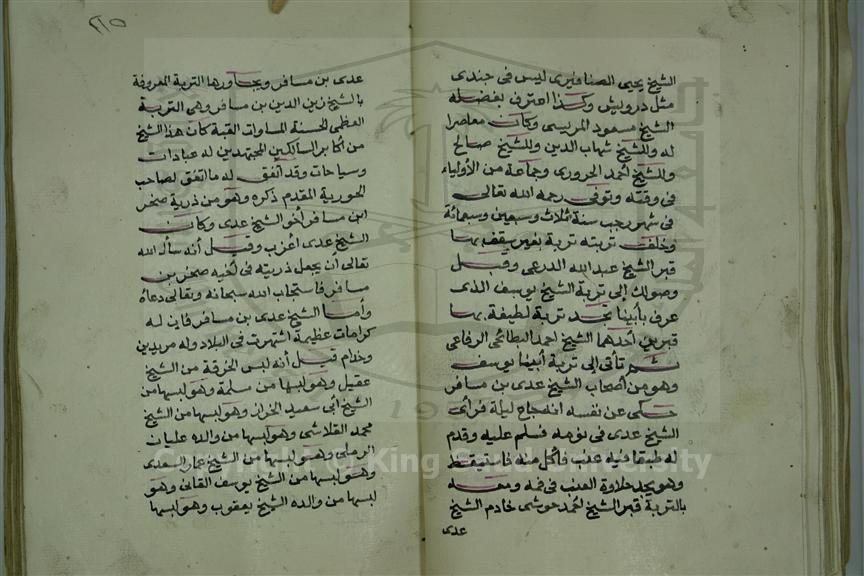 الشيخ يحيى الصنافيرى ليس فى جندى
مثل درويش وكذا اعترف بفضله
الشيخ مسعود المريسى وكان معاصرا
له وللشيخ شهاب الدين وللشيخ صالح
وللشيخ أحمد الجزورى وجماعة من الأولياء
فى وقته وتوفى رحمه الله تعالى
فى شهر رجب سنة ثلاث وسبعين وسبعمائة
وخلف تربته تربة بغير سقف بها
قبر الشيخ عبد الله الدرعى وقبل
وصولك إلى تربة الشيخ يوسف الذى
عرف بأبينا تجد تربة لطيفة بها
قبرين أحدهما الشيخ احمد البطائحى الرفاعى
ثم تأتى إلى تربة أبينا يوسف
وهو من أصحاب الشيخ عدى بن مسافر
حكى عن نفسه انه جاع ليلة فرأى
الشيخ عدى فى نومه فسلم عليه وقدم
له طبقا فيه عنب فأكل منه فاستيقظ
وهو يجد حلاوة العنب فى فمه ومعه
بالتربة قبر الشيخ أحمد حوشى خادم الشيخ
عدى
٢١٥
عدى بن مسافر ويجاورها التربة المعروفة
بالشيخ زين الدين بن مسافر وهى التربة
العظمى الحسنة المساوات القبة كان هذا الشيخ
من أكابر السالكين المجتهدين له عبادات
وسياحات وقد اتفق له ما اتفق لصاحب
الحورية المقدم ذكره وهو من ذرية صخر
ابن مسافر أخو الشيخ عدى وكان
الشيخ عدى أعزب وقيل أنه سأل الله
تعالى أن يجعل ذريته فى أخيه صخر بن
مسافر فاستجاب الله سبحانه وتعالى دعاه
وأما الشيخ عدى بن مسافر فاين له
كرامات عظيمة اشتهرت فى البلاد وله مريدين
وخدام قيل أنه لبس الخرقة من الشيخ
عقيل وهو لبسها من مسلمة وهو لبسها من
الشيخ أبى سعيد الخراز وهو لبسها من الشيخ
محمد القلانسى وهو لبسها من والده عليان
الرملى وهو لبسها من الشيخ عمار السعدى
وهو لبسها من الشيخ يوسف الفانى وهو
لبسها من والده الشيخ يعقوب وهو لبسها
Copyright © King Saud University